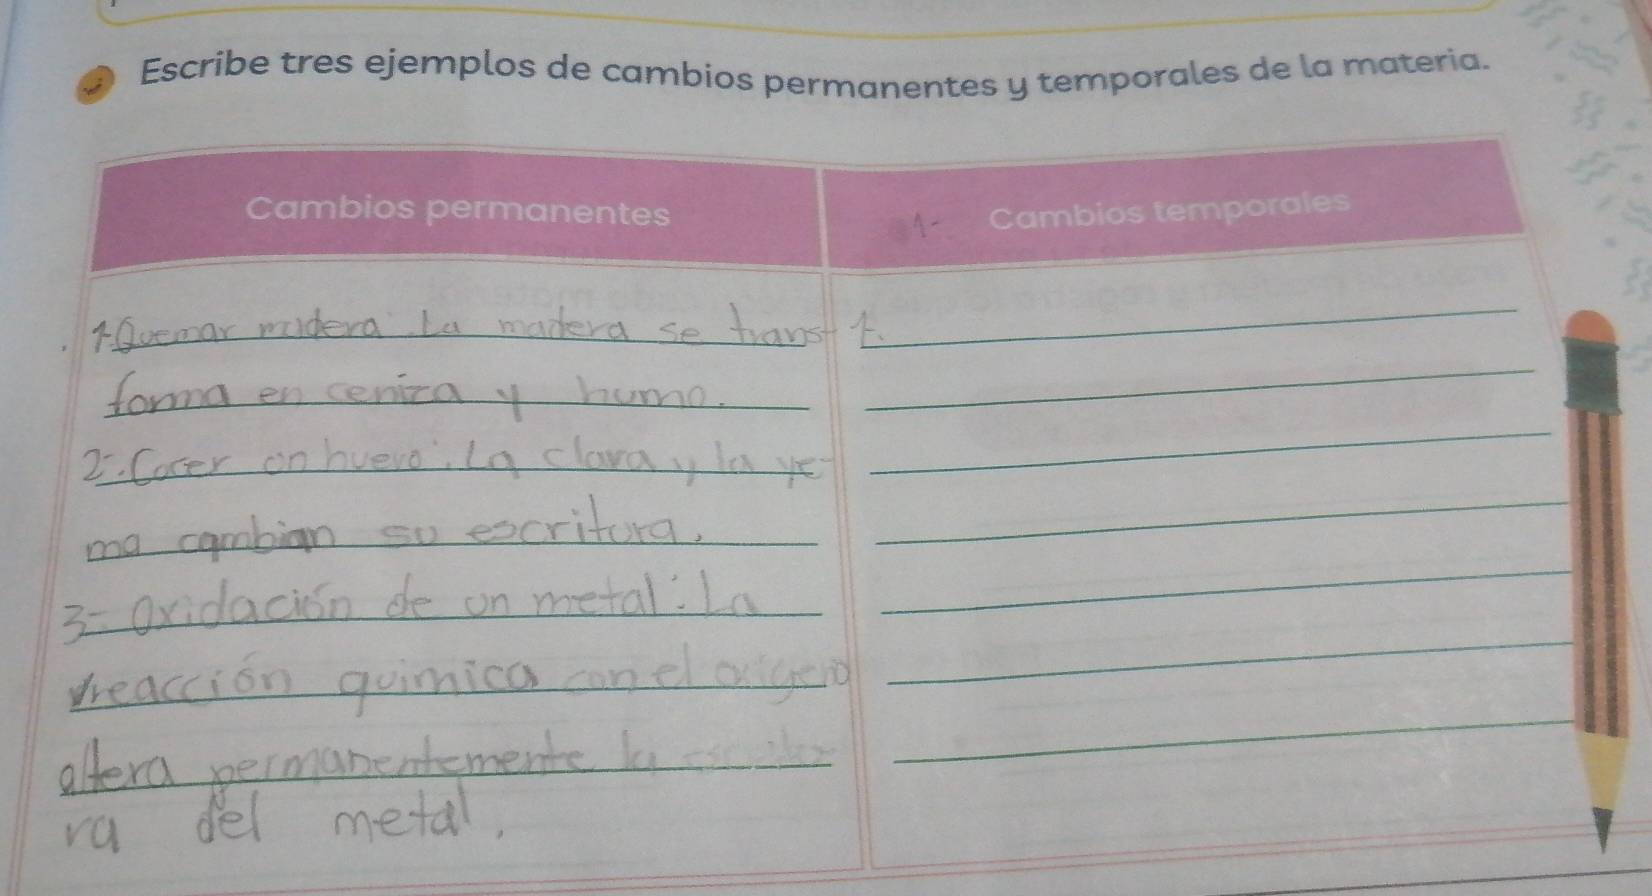 Escribe tres ejemplos de cambios permanentes y temporales de la materia.
Cambios permanentes
1- Cambios temporales
1-Quemar madera La madera se trans
1.
forma en ceniza y humo.
2-.Cocer on huevo. La clara y la ye-
ma cambian su escritura.
3- Oxidación de un metal: La
reacción quimica con el oxigeno
altera permanentemente la
ra del metal.